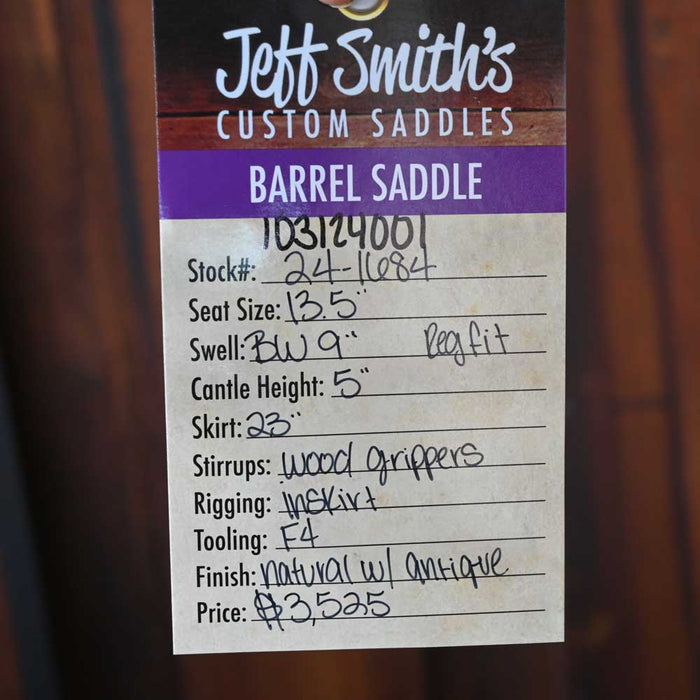 Jeff Smith's
CUSTOM SADDLES
BARREL SADDLE
103124001
Stock#: 24-1684
Seat Size: 13.5"
Swell: BW 9" Reg fit
Cantle Height: 5"
Skirt: 23"
Stirrups: wood grippers
Rigging: Inskirt
Tooling: F4
Finish: natural w/ antique
Price: $3,525